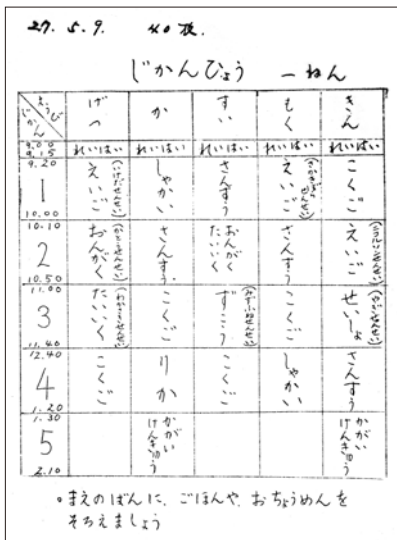 27. 5. 9. 40枚.
じかんひょう 一ねん
ようび じかん げつ か すい もく きん
9.00 9.15 れいはい れいはい れいはい れいはい れいはい
9.20 1 10.00 えいご しゃかい さんすう えいご こくご
10.10 2 10.50 おんがく さんすう おんがく たいいく さんすう えいご
11.00 3 11.40 たいいく こくご ずこう こくご せいしょ
12.40 4 1.20 こくご りか こくご しゃかい さんすう
1.30 5 2.10 かがい けんきゅう かがい けんきゅう
。まえのばんに、ごほんや、おちょうめんを
そろえましょう